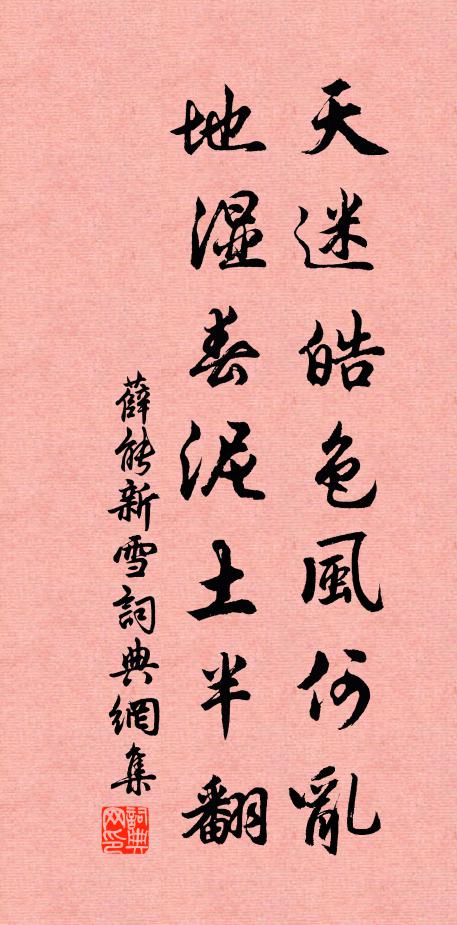 天迷皓色風何亂
地湿春泥土半翻
薛能新雪詞典網集
詞典网印